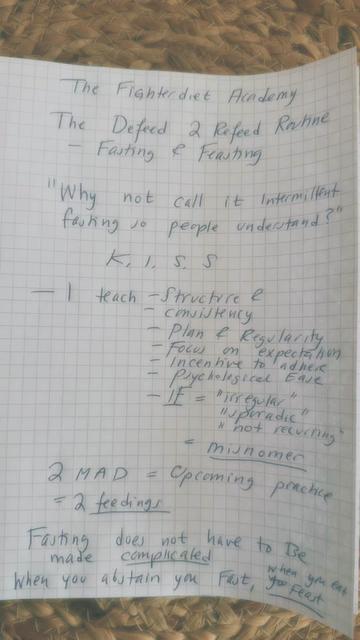 The Fighterdiet Academy
The Defeed 2 Refeed Routine
- Fasting & Feasting
"Why not call it Intermittent
fasting so people understand?"
K. I. S. S
- I teach - Structure &
- consistency
- Plan & Regularity
- Focus on expectation
- Incentive to adhere
- Psychological Ease
- IF = "irregular"
"sporadic"
"not recurring"
= misnomer
2 MAD = Upcoming practice
= 2 feedings
Fasting does not have to Be
made complicated
When you abstain you Fast, when you eat
you Feast